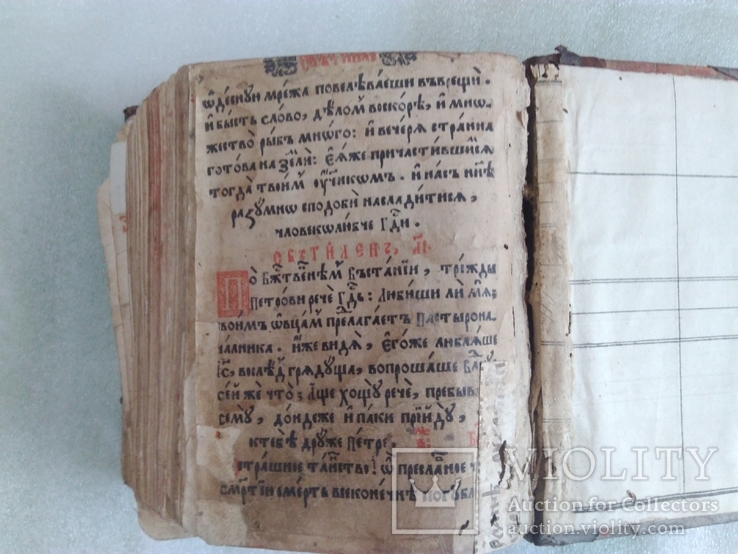 СВѢТИЛНА
ѡ҆деснꙋю мрежа повелѣваеши въврещи.
и҆ бысть сло́во, дѣ́ломъ вскорѣ, и҆ мно́
жество рыбъ мно́го: и҆ вечерѧ стра́нна
гото́ва на земли̑: е҆ѧ́же причасти́вшимсѧ
тогда̀ твои̑мъ ᲂу҆ченикѡмъ. и҆ насъ нн҃ѣ
разꙋмно сподо́би насладитисѧ,
человеколю́бче гдⷭ҇и.
СВѢТИЛЕНЪ, а҃і
По бжⷭ҇твенѣмъ въста́нїи, три́жды
Петро́ви рече гдⷭ҇ь: лю́биши ли мѧ̀
свои́мъ ѻ҆вца́мъ предлага́етъ пастырона
ча́лника. и҆́же видѧ̀, є҆го́же любѧ́ше
і҆с҃, вослѣ́дъ грѧдꙋща, вопроша́ше
се́й же что̀; а҆́ще хощꙋ речѐ, пребы
семꙋ̀, до́ндеже и҆ паки прїи́дꙋ,
к тебѣ̀ дрꙋ́же петре.
стра́шное та́инство! ѽ пресла́вное
сме́ртїи сме́рть всеконе́чнѣ погꙋб
VIOLITY
Auction for Collectors
auction.violity.com